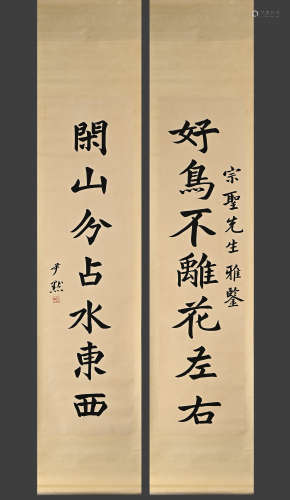 好鳥不離花左右
宗聖先生 雅鑒
閑山分占水東西
尹默